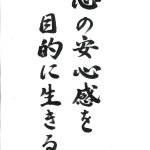 心の安心感を
目的に生きる